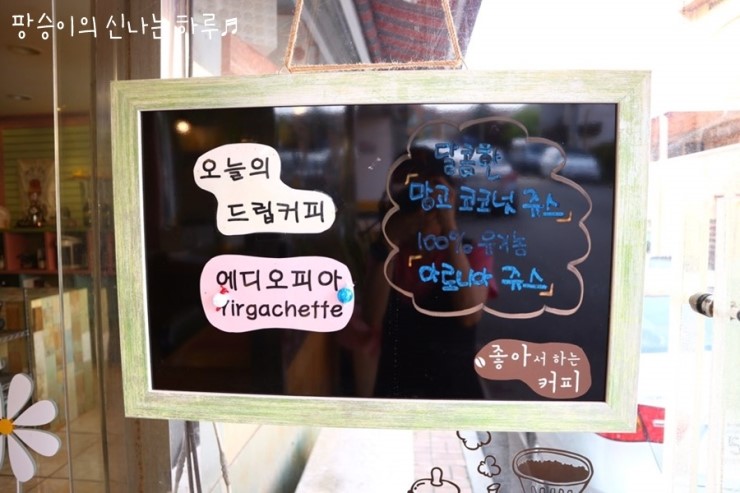 팡승이의 신나는 하루♬
오늘의
드립커피
에디오피아
Yirgachette
달콤한
「망고 코코넛 쥬스」
100% 유기농
「아로니아 쥬스」
좋아서 하는
커피